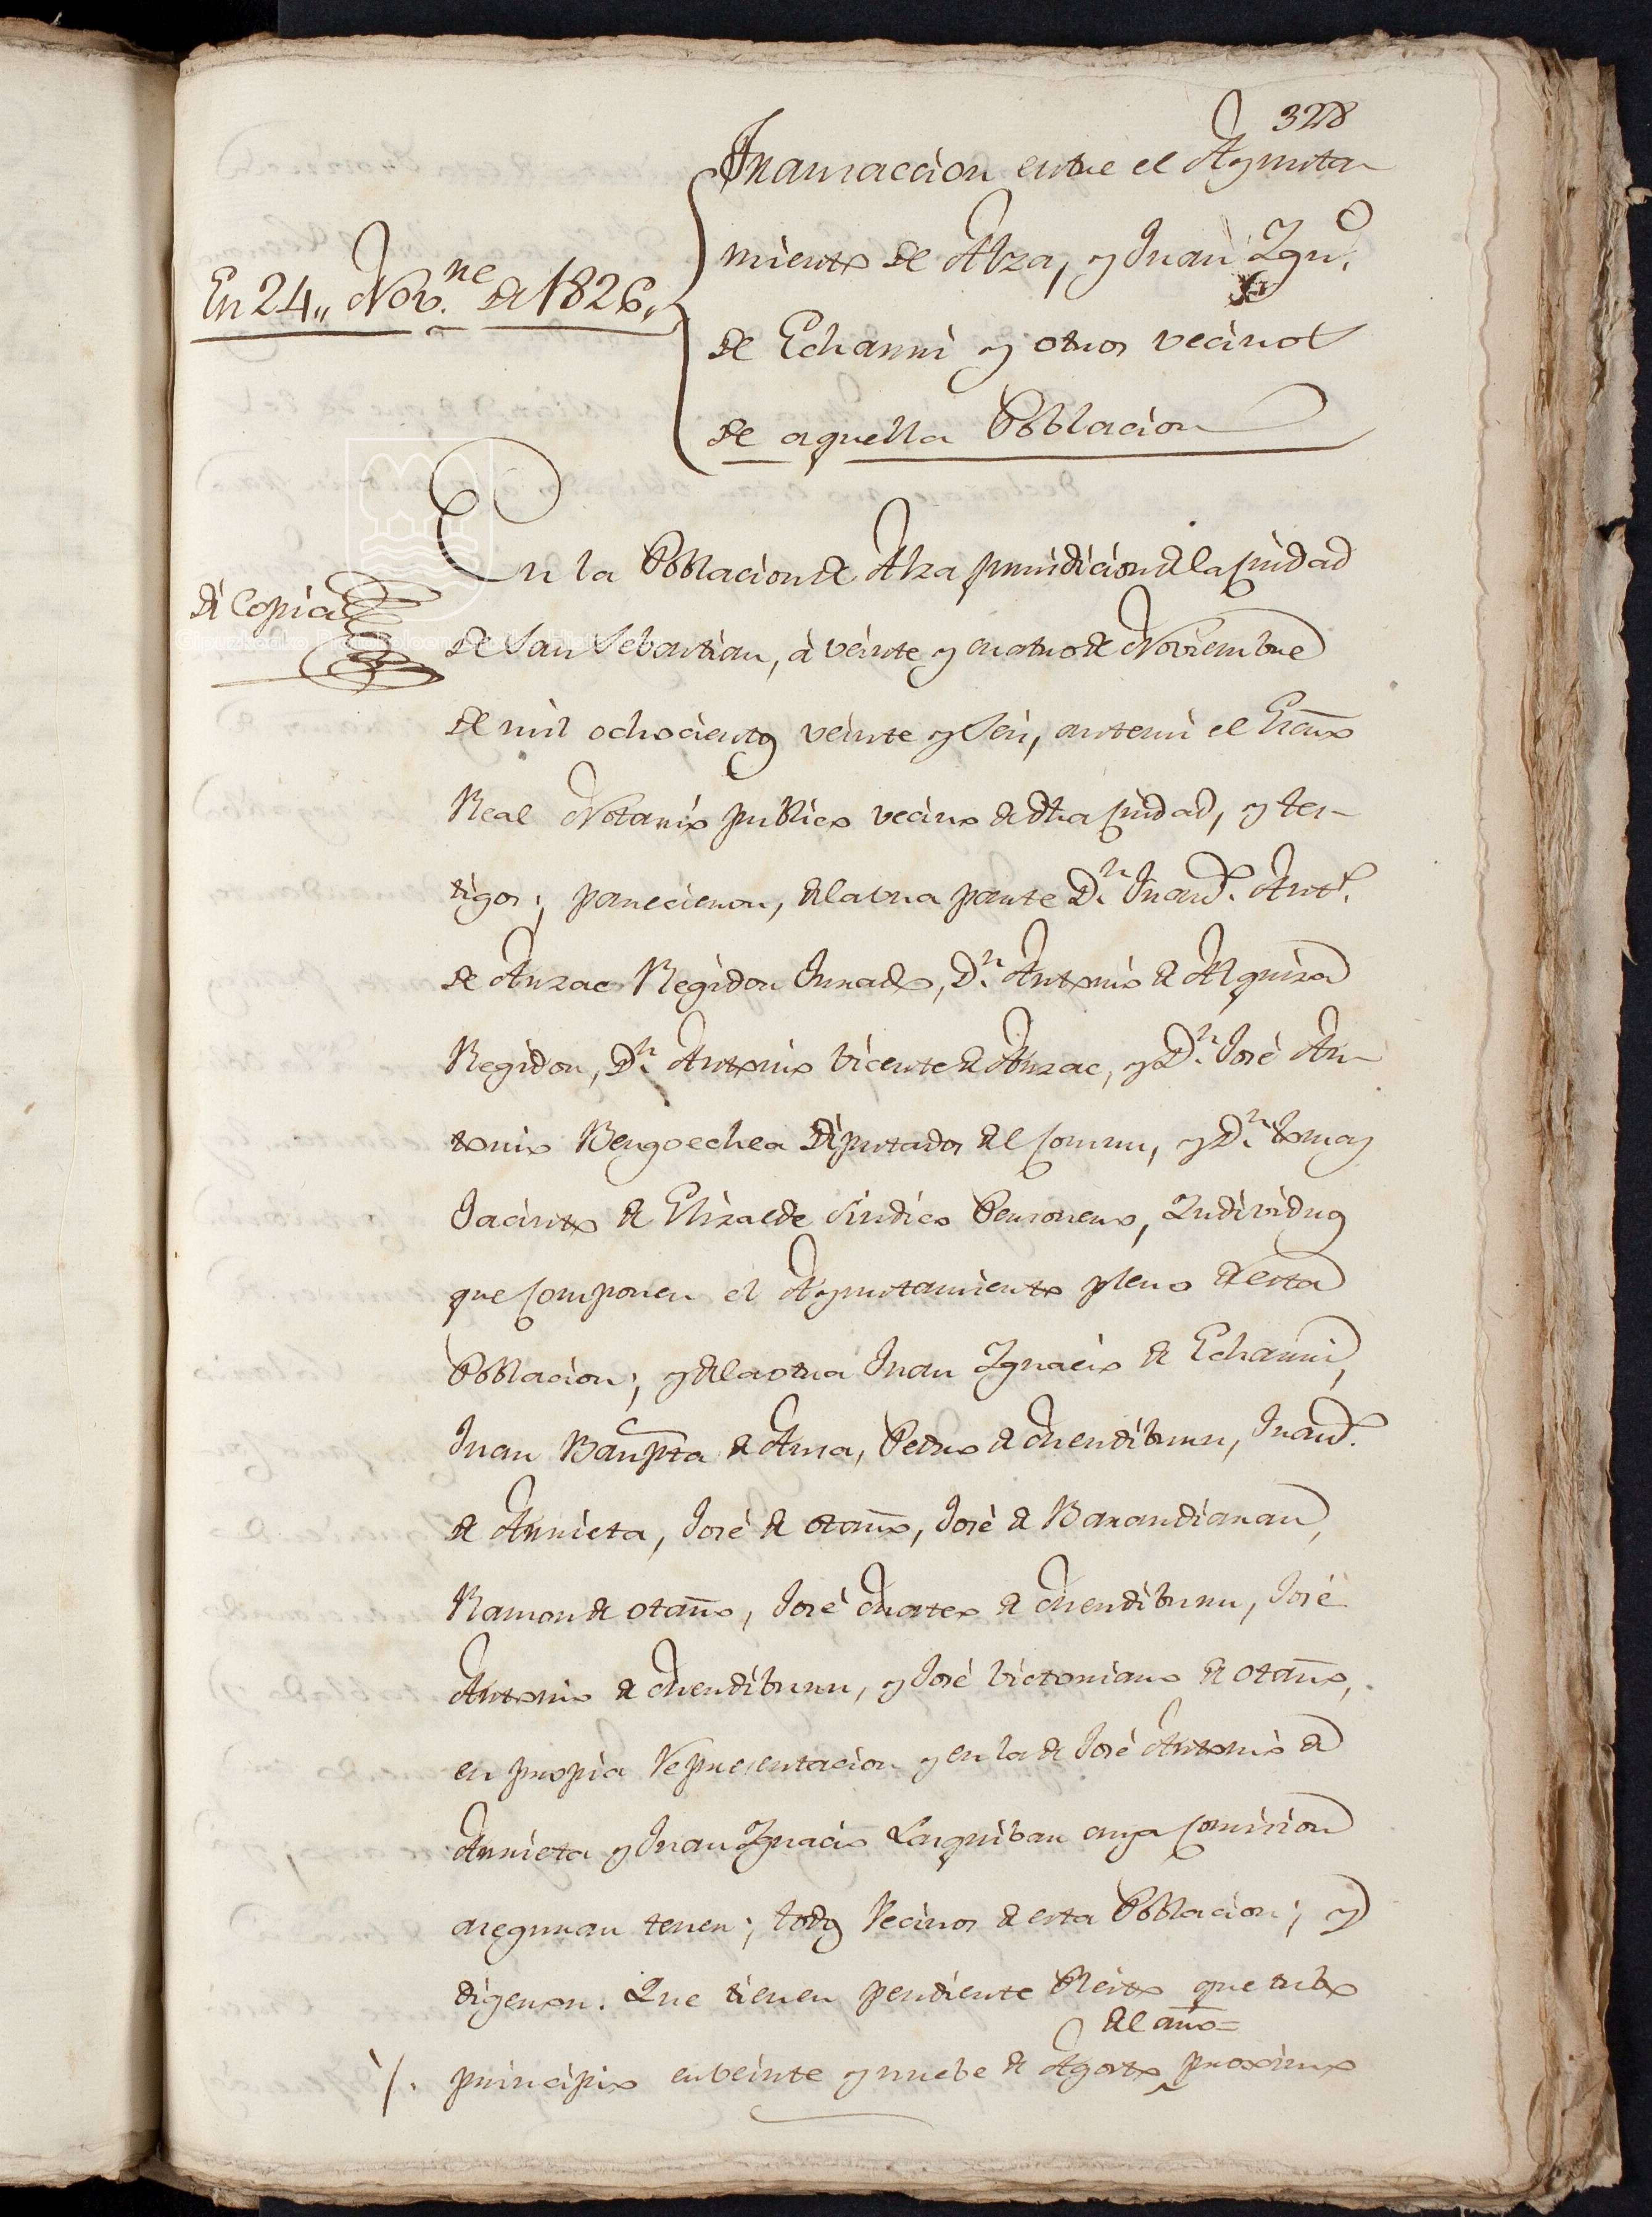 328
Transaccion entre el Ayunta
miento de Alza, y Juan Ygn.º
de Echarri y otros vecinos
de aquella Poblacion
En 24,, Nov.ne de 1826,,
En la Poblacion de Alza jurisdicion de la Ciudad
di Copia
de San Sebastian, à veinte y cuatro de Noviembre
de mil ochocientos veinte y seis, ante mi el Esc̄no
Real Notario publico vecino de dha Ciudad, y tes-
tigos; parecieron, de la una parte D.n Juan J. Ant.
de Arzac Regidor Jurado, D.n Antonio de Alquiza
Regidor, D.n Antonio Vicente de Arzac, y D.n José An-
tonio Bengoechea Diputados del Comun, y D.n Tomas
Jacinto de Elizalde Sindico Personero, Individuos
que componen el Ayuntamiento pleno de esta
Poblacion; y de la otra Juan Ygnacio de Echarri,
Juan Baupta de Arra, Pedro de Mendiburu, Juan J.
de Arrieta, José de otaño, José de Barandiaran,
Ramon de otaño, José Mateo de Mendiburu, José
Antonio de Mendiburu, y José Victoriano de otaño,
en propia representacion y en la de José Antonio de
Arrieta y Juan Ygnacio Larquibar cuya comision
aseguran tener; todos Vecinos de esta Poblacion; y
digeron. Que tienen pendiente Pleito que tubo
del año=
/. principio en veinte y nuebe de Agosto proximo
Gipuzkoako Protokoloen Artxibo Historikoa